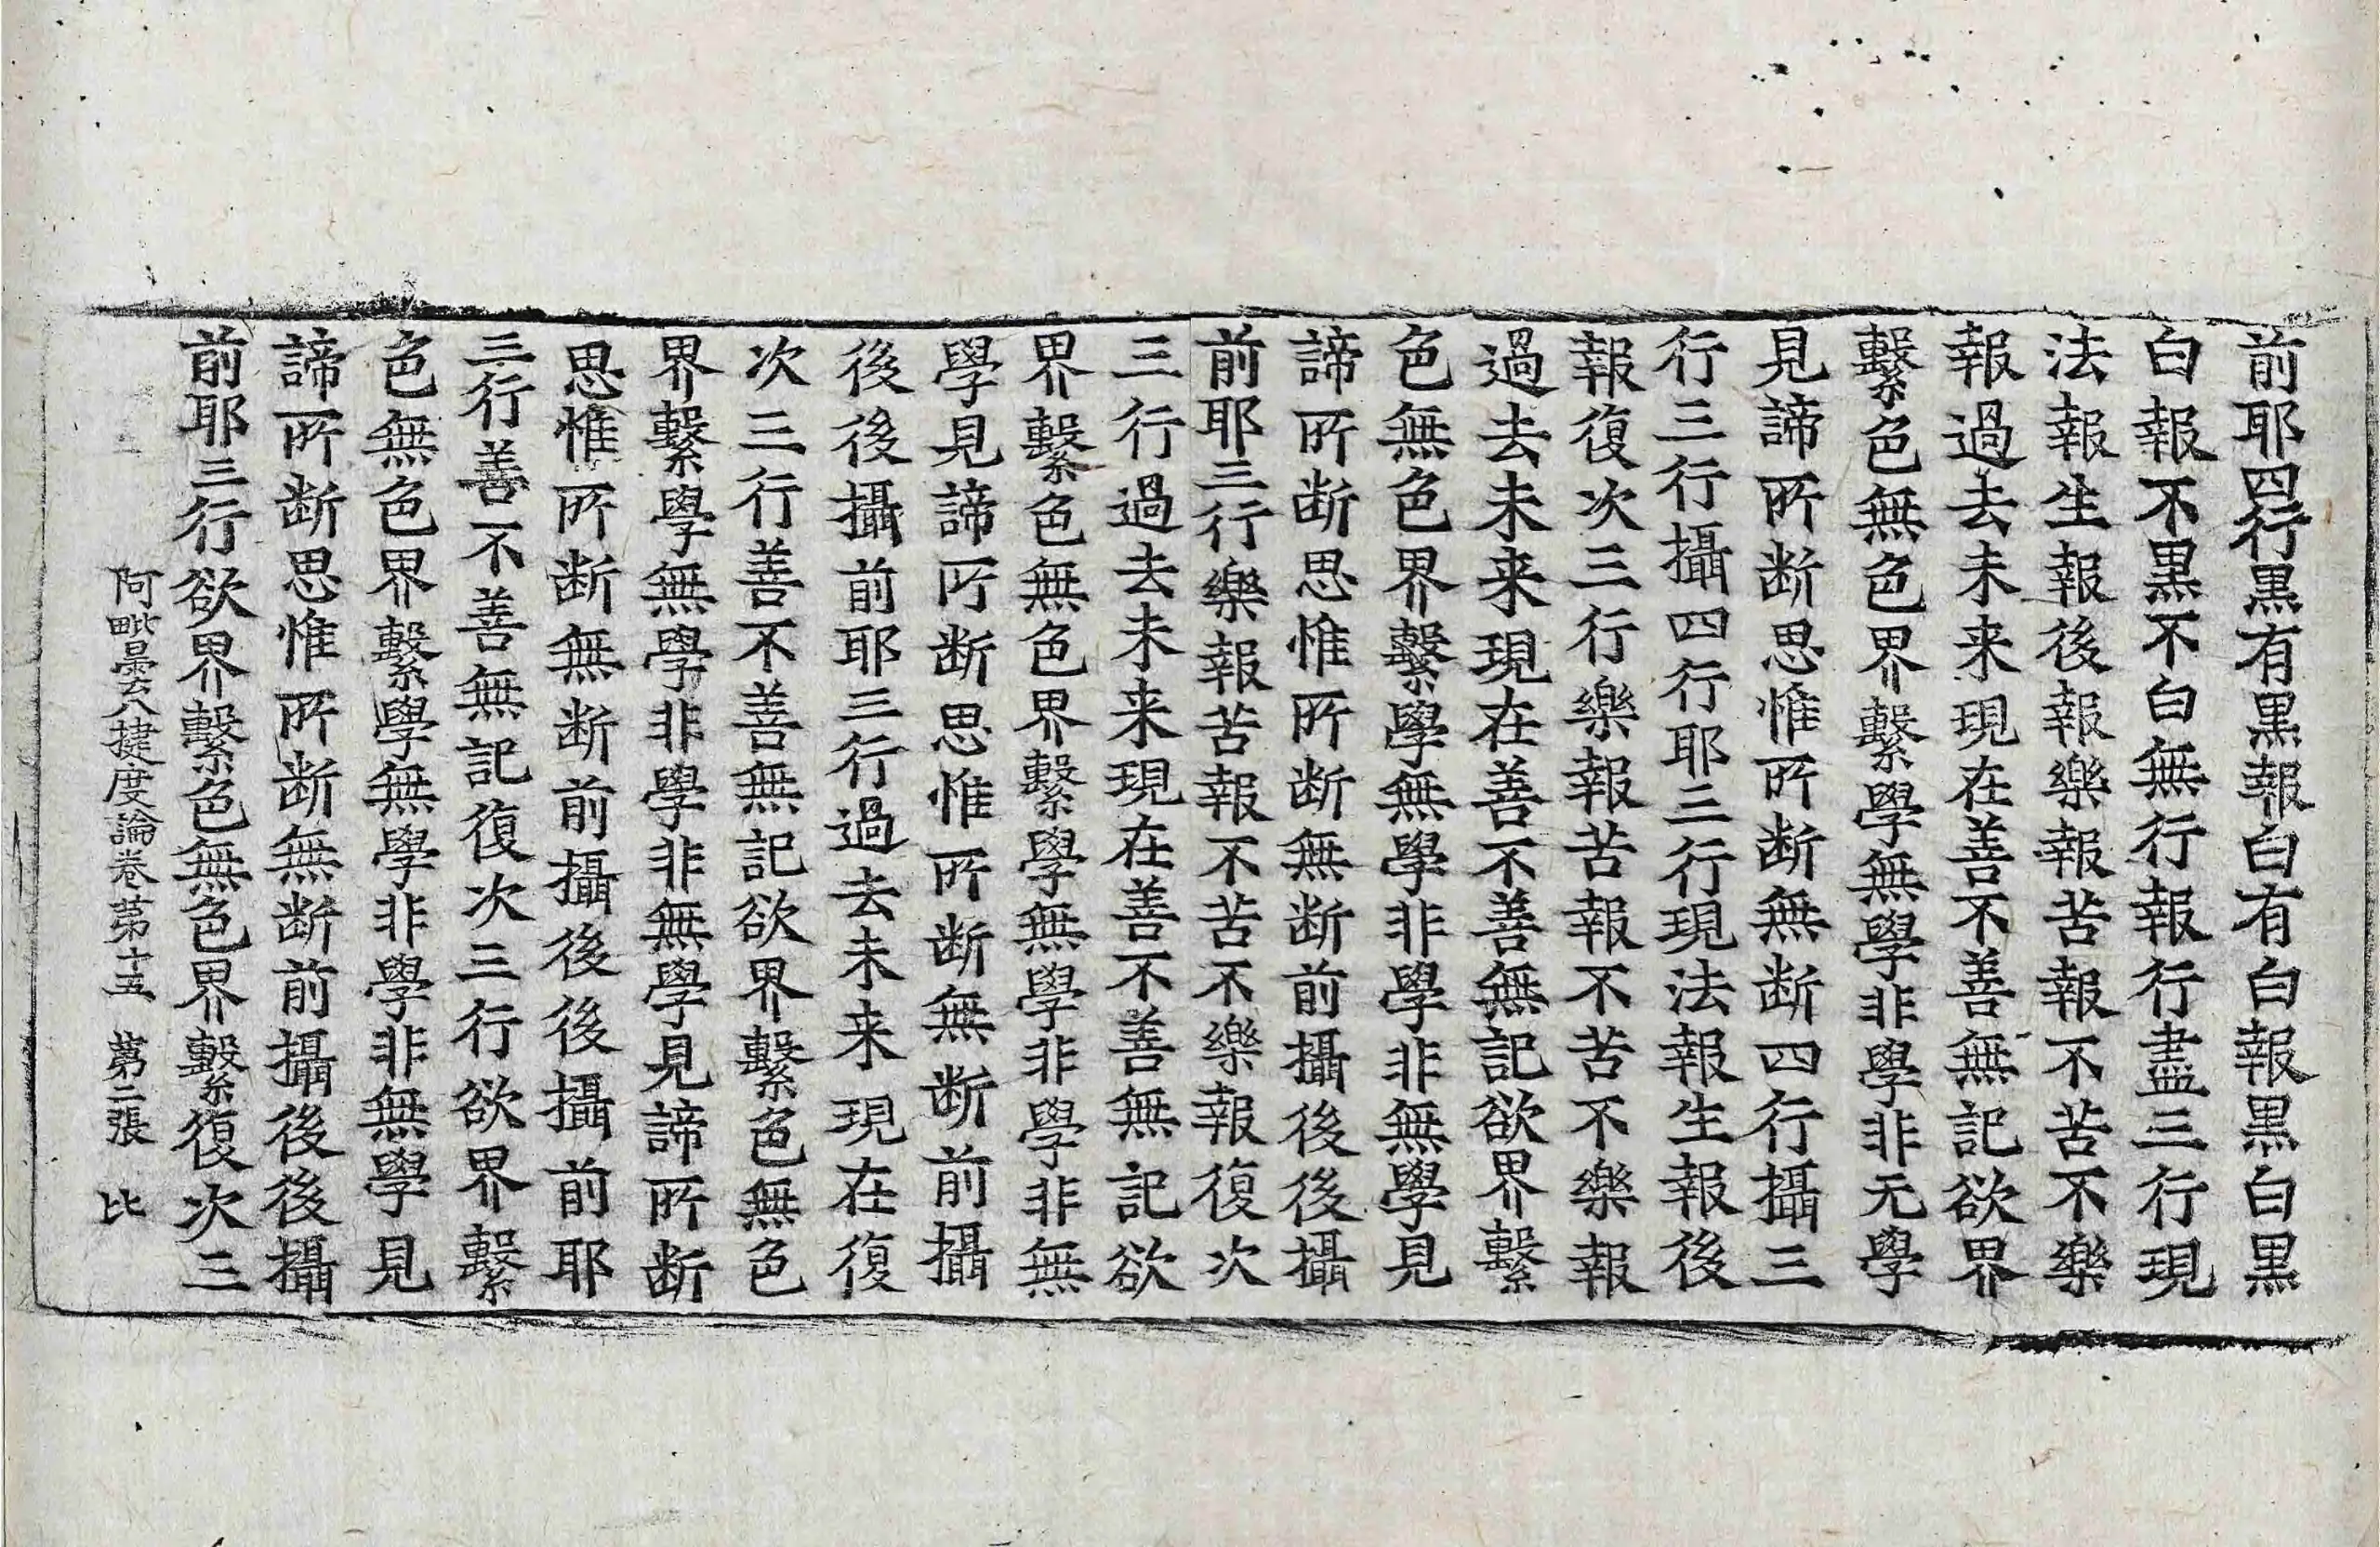 前耶四行黒有黒報白有白報黒白黒
白報不黒不白無行報行盡三行現
法報生報後報樂報苦報不苦不樂
報過去未来現在善不善無記欲界
繫色無色界繫學無學非學非无學
見諦所断思惟所断無断四行攝三
行三行攝四行耶三行現法報生報後
報復次三行樂報苦報不苦不樂報
過去未来現在善不善無記欲界繫
色無色界繫學無學非學非無學見
諦所断思惟所断無断前攝後後攝
前耶三行樂報苦報不苦不樂報復次
三行過去未来現在善不善無記欲
界繫色無色界繫學無學非學非無
學見諦所断思惟所断無断前攝
後後攝前耶三行過去未来現在復
次三行善不善無記欲界繫色無色
界繫學無學非學非無學見諦所断
思惟所断無断前攝後後攝前耶
三行善不善無記復次三行欲界繫
色無色界繫學無學非學非無學見
諦所断思惟所断無断前攝後後攝
前耶三行欲界繫色無色界繫復次三
阿毗曇八揵度論卷苐十五 苐二張 比